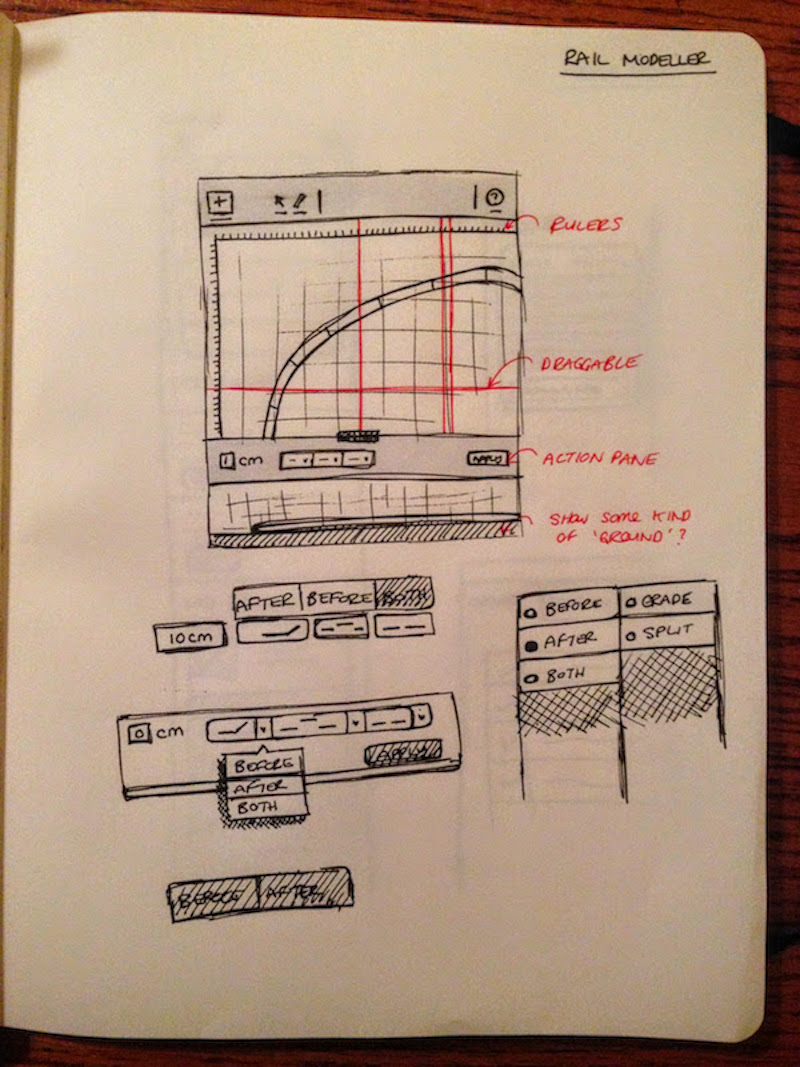 RAIL MODELLER
+
?
RULERS
DRAGGABLE
1 cm
APPLY
ACTION PANE
SHOW SOME KIND
OF 'GROUND'?
AFTER BEFORE BOTH
10cm
BEFORE GRADE
AFTER SPLIT
BOTH
0 cm
APPLY
BEFORE
AFTER
BOTH
BEFORE AFTER